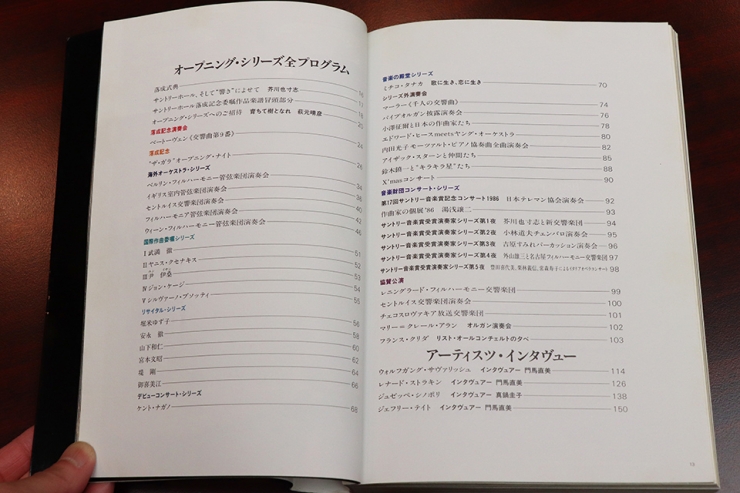 オープニング・シリーズ全プログラム
落成式典 10
サントリーホール、そして“響き”によせて 芥川也寸志
サントリーホール落成記念委嘱作品楽譜冒頭部分
オープニング・シリーズへのご招待 育ちて樹となれ 萩元晴彦 20
落成記念演奏会
ベートーヴェン《交響曲第9番》
落成記念
“ザ・ガラ”オープニング・ナイト
海外オーケストラ・シリーズ
ベルリン・フィルハーモニー管弦楽団演奏会
イギリス室内管弦楽団演奏会
セントルイス交響楽団演奏会
フィルハーモニア管弦楽団演奏会
ウィーン・フィルハーモニー管弦楽団演奏会 46
国際作曲委嘱シリーズ
I 武満 徹 51
II ヤニス・クセナキス 52
III 尹 伊桑 53
IV ジョン・ケージ 54
V シルヴァーノ・ブソッティ 55
リサイタル・シリーズ
堀米ゆず子 56
安永 徹 58
山下和仁 60
宮本文昭 62
堤 剛 64
御喜美江 66
デビューコンサート・シリーズ
ケント・ナガノ 68
音楽の殿堂シリーズ
ミチコ・タナカ 歌に生き、恋に生き 70
シリーズ外演奏会
マーラー《千人の交響曲》 74
パイプオルガン披露演奏会 76
小澤征爾と日本の作曲家たち 78
エドワード・ヒースmeetsヤング・オーケストラ 80
内田光子モーツァルト・ピアノ協奏曲全曲演奏会 82
アイザック・スターンと仲間たち 85
鈴木鎮一と“キラキラ星”たち 88
X'masコンサート 90
音楽財団コンサート・シリーズ
第17回サントリー音楽賞記念コンサート1986 日本テレマン協会演奏会 92
作曲家の個展'86 湯浅譲二 93
サントリー音楽賞受賞演奏家シリーズ第1夜 芥川也寸志と新交響楽団 94
サントリー音楽賞受賞演奏家シリーズ第2夜 小林道夫チェンバロ演奏会 95
サントリー音楽賞受賞演奏家シリーズ第3夜 吉原すみれパーカッション演奏会 96
サントリー音楽賞受賞演奏家シリーズ第4夜 外山雄三と名古屋フィルハーモニー交響楽団 97
サントリー音楽賞受賞演奏家シリーズ第5夜 豊田喜代美、栗林義信、常森寿子によるイタリアオペラコンサート 98
協賛公演
レニングラード・フィルハーモニー交響楽団 99
セントルイス交響楽団演奏会 100
チェコスロヴァキア放送交響楽団 101
マリー＝クレール・アラン オルガン演奏会 102
フランス・クリダ リスト・オールコンチェルトの夕べ 103
アーティスツ・インタヴュー
ウォルフガング・サヴァリッシュ インタヴュアー 門馬直美 114
レナード・ストラキン インタヴュアー 門馬直美 126
ジュゼッペ・シノポリ インタヴュアー 真鍋圭子 138
ジェフリー・テイト インタヴュアー 門馬直美 150